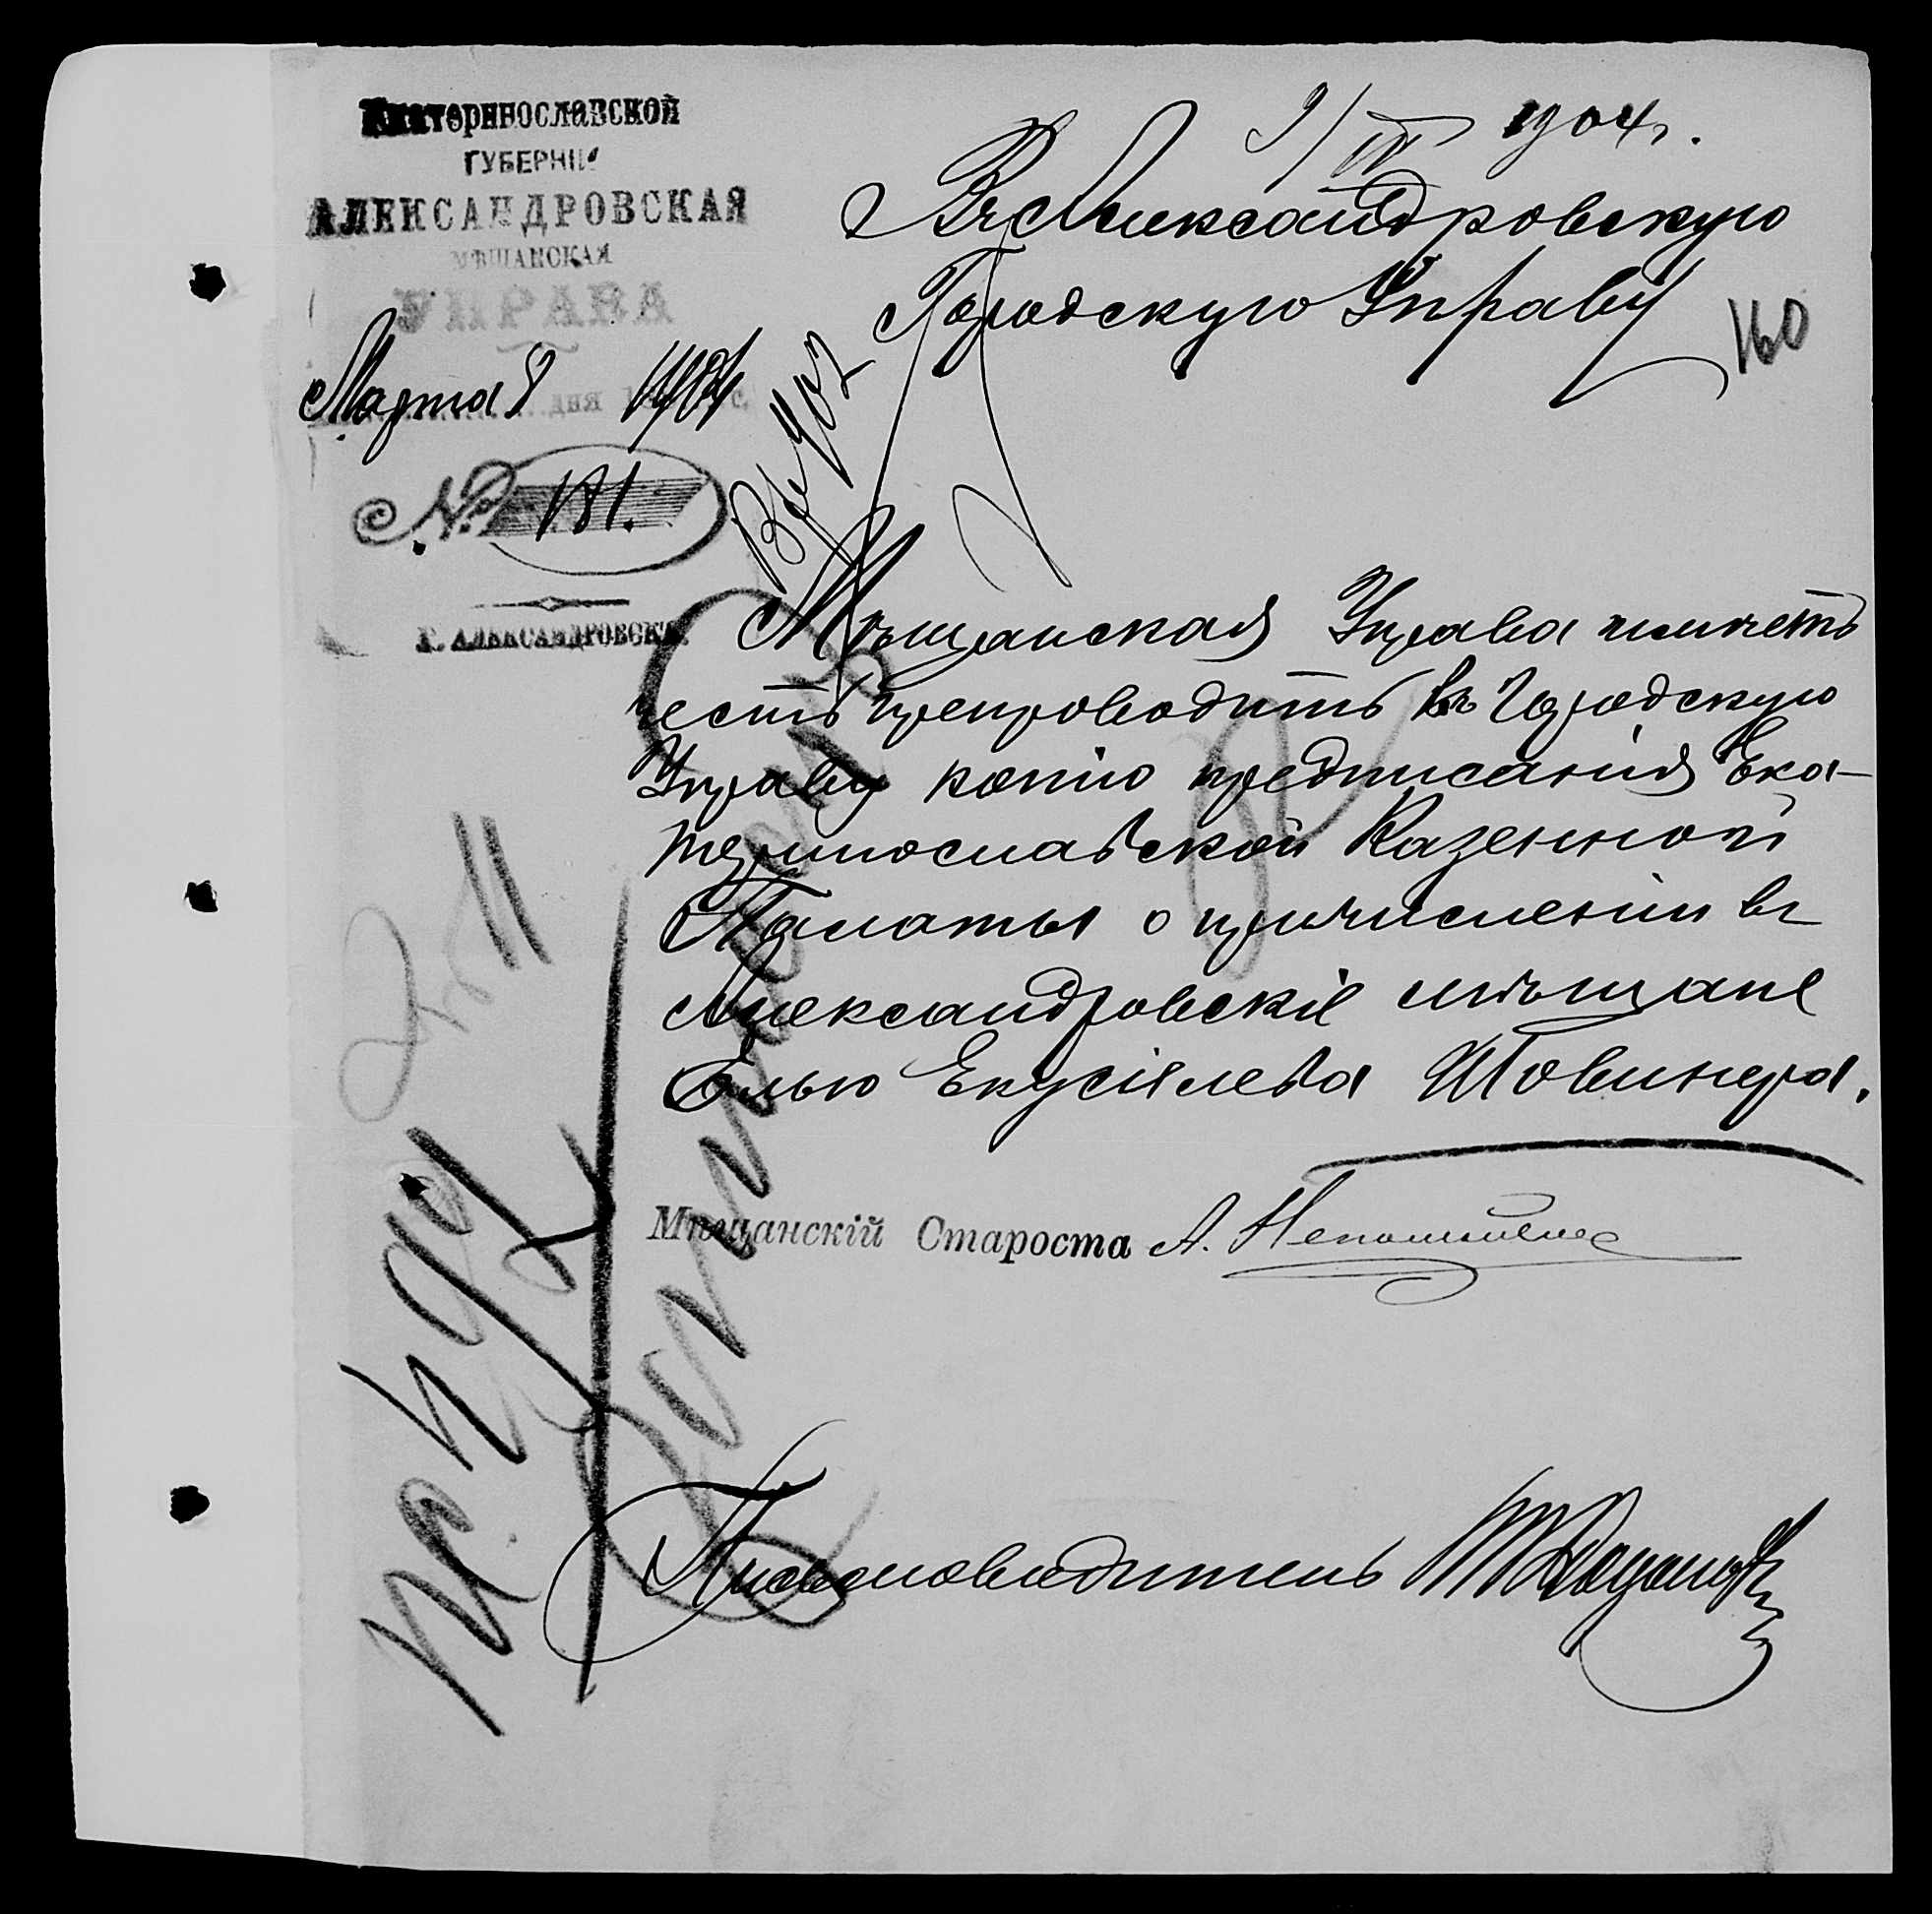 Екатеринославской
ГУБЕРНІИ
АЛЕКСАНДРОВСКАЯ
МѢЩАНСКАЯ
УПРАВА
Марта 8 дня 1904
№ 181.
Г. АЛЕКСАНДРОВСКЪ.
9/III 1904 г.
Въ Александровскую
Городскую Управу
160
Вх 902
Мѣщанская Управа имѣетъ
честь препроводить въ Городскую
Управу копію предписанія Ека-
теринославской Казенной
Палаты о причисленіи въ
Александровскіе мѣщане
Элью Екусіелева Шовинера.
Мѣщанскій Староста А.
Письмоводитель